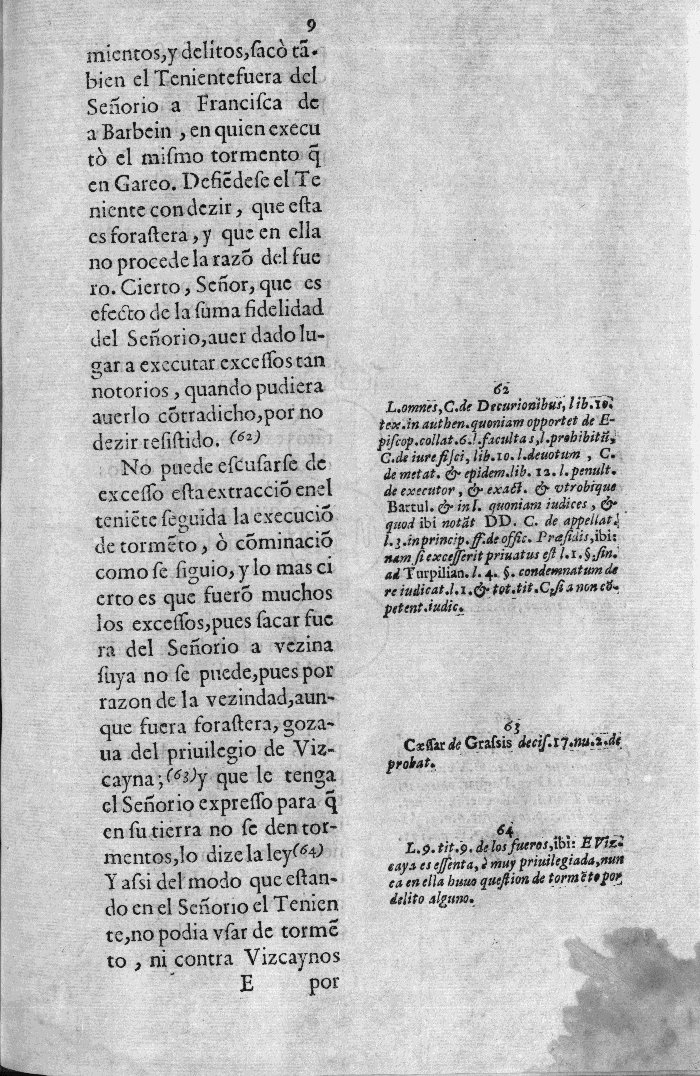 9
mientos,y delitos,ſacò tã-
bien el Tenientefuera del
Señorio a Franciſca de
a Barbein , en quien execu
tò el miſmo tormento q̃
en Gareo. Defiẽdeſe el Te
niente con dezir , que eſta
es foraſtera , y que en ella
no procede la razõ del fue
ro. Cierto , Señor, que es
efecto de la ſuma fidelidad
del Señorio,auer dado lu-
gar a executar exceſſos tan
notorios , quando pudiera
auerlo cõtradicho,por no
dezir reſiſtido. (62)
No puede eſcuſarſe de
exceſſo eſta extracciõ enel
teniẽte ſeguida la execuciõ
de tormẽto , ò cõminaciõ
como ſe ſiguio, y lo mas ci
erto es que fuerõ muchos
los exceſſos,pues ſacar fue
ra del Señorio a vezina
ſuya no ſe puede,pues por
razon de la vezindad,aun-
que fuera foraſtera, goza-
ua del priuilegio de Viz-
cayna;(63)y que le tenga
el Señorio expreſſo para q̃
en ſu tierra no ſe den tor-
mentos,lo dize la ley(64)
Y aſsi del modo que eſtan-
do en el Señorio el Tenien
te,no podia vſar de tormẽ
to , ni contra Vizcaynos
E por
62
L.omnes, C.de Decurionibus, lib.10.
tex.in authen.quoniam opportet de E-
piſcop.collat.6.l.facultas,l.prohibitũ,
C.de iure fiſci, lib.10.l.deuotum , C.
de metat. & epidem.lib. 12.l.penult.
de executor , & exact. & vtrobique
Bartul. & in l. quoniam iudices , &
quod ibi notãt DD. C. de appellat.
l.3.in princip.ff.de offic. Præſidis,ibi:
nam ſi exceſſerit priuatus eſt l.1.§.fin.
ad Turpilian.l.4. §. condemnatum de
re iudicat.l.1.& tot.tit.C,ſi a non cõ-
petent.iudic.
63
Cæſſar de Graſsis deciſ.17.nu.2.de
probat.
64
L.9.tit.9.de los fueros,ibi: E Viz-
caya es eſſenta, è muy priuilegiada,nun
ca en ella huuo queſtion de tormẽto por
delito alguno.